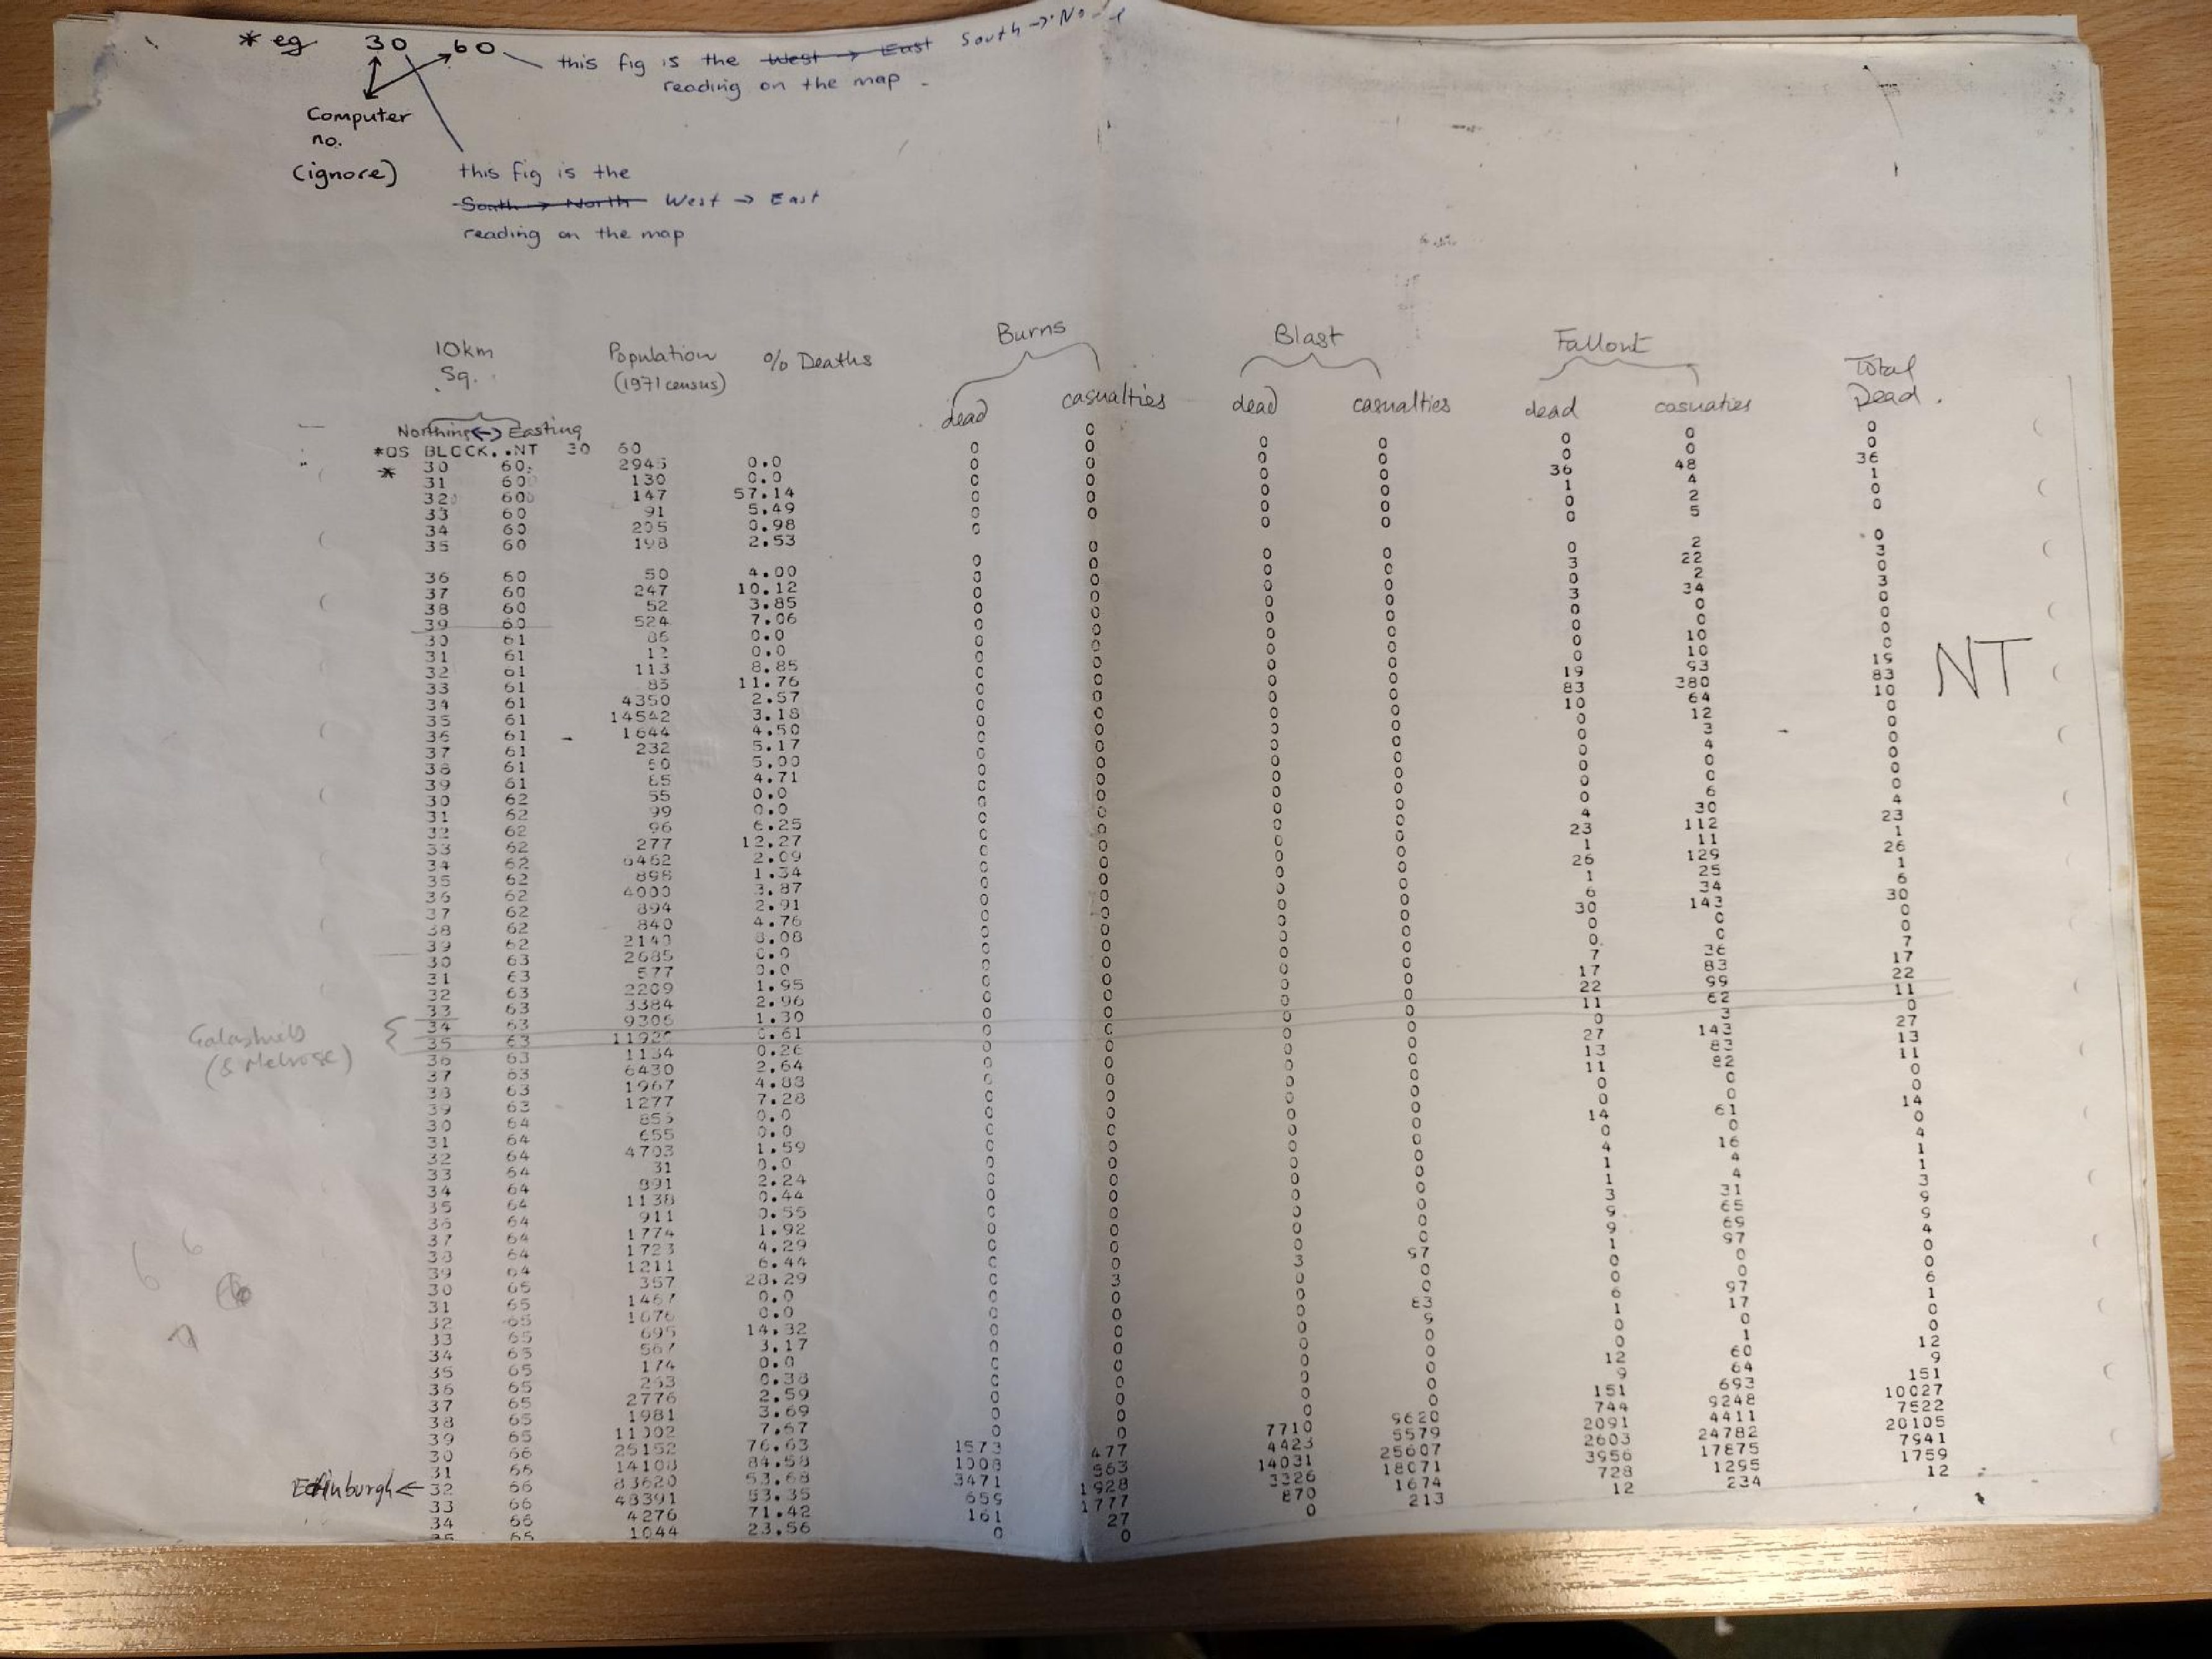 * eg 30 60 this fig is the West → East South →
reading on the map -
Computer
no.
(ignore)
this fig is the
South → North West → East
reading on the map
Burns Blast Fallout
10km Population % Deaths Total
Sq. (1971 census) Dead.
dead casualties dead casualties dead casuaties
Northing ↔ Easting
*OS BLOCK..NT 30 60
* 30 60 2945 0.0 0 0 0 0 0 0 0
31 60 130 0.0 0 0 0 0 0 0 0
32 60 147 57.14 0 0 0 0 36 48 36
33 60 91 5.49 0 0 0 0 1 4 1
34 60 205 0.98 0 0 0 0 0 2 0
35 60 198 2.53 0 0 0 0 0 5 0
36 60 50 4.00 0 0 0 0 0 2 0
37 60 247 10.12 0 0 0 0 3 22 3
38 60 52 3.85 0 0 0 0 0 2 0
39 60 524 7.06 0 0 0 0 3 34 3
30 61 86 0.0 0 0 0 0 0 0 0
31 61 12 0.0 0 0 0 0 0 0 0
32 61 113 8.85 0 0 0 0 0 10 0
33 61 85 11.76 0 0 0 0 0 10 0
34 61 4350 2.57 0 0 0 0 19 93 19
35 61 14542 3.18 0 0 0 0 83 380 83
36 61 1644 4.50 0 0 0 0 10 64 10
37 61 232 5.17 0 0 0 0 0 12 0
38 61 60 5.00 0 0 0 0 0 3 0
39 61 85 4.71 0 0 0 0 0 4 0
30 62 55 0.0 0 0 0 0 0 0 0
31 62 99 0.0 0 0 0 0 0 0 0
32 62 96 6.25 0 0 0 0 0 6 0
33 62 277 12.27 0 0 0 0 4 30 4
34 62 6462 2.09 0 0 0 0 23 112 23
35 62 898 1.34 0 0 0 0 1 11 1
36 62 4000 3.87 0 0 0 0 26 129 26
37 62 894 2.91 0 0 0 0 1 25 1
38 62 840 4.76 0 0 0 0 6 34 6
39 62 2140 8.08 0 0 0 0 30 143 30
30 63 2685 0.0 0 0 0 0 0 0 0
31 63 577 0.0 0 0 0 0 0 0 0
32 63 2209 1.95 0 0 0 0 7 36 7
33 63 3384 2.96 0 0 0 0 17 83 17
34 63 9306 1.30 0 0 0 0 22 99 22
Galashiels (& Melrose) { 35 63 11920 0.61 0 0 0 0 11 62 11
36 63 1134 0.26 0 0 0 0 0 3 0
37 63 6430 2.64 0 0 0 0 27 143 27
38 63 1967 4.83 0 0 0 0 13 83 13
39 63 1277 7.28 0 0 0 0 11 82 11
30 64 855 0.0 0 0 0 0 0 0 0
31 64 655 0.0 0 0 0 0 0 0 0
32 64 4703 1.59 0 0 0 0 14 61 14
33 64 31 0.0 0 0 0 0 0 0 0
34 64 891 2.24 0 0 0 0 4 16 4
35 64 1138 0.44 0 0 0 0 1 4 1
36 64 911 0.55 0 0 0 0 1 4 1
37 64 1774 1.92 0 0 0 0 3 31 3
38 64 1723 4.29 0 0 0 0 9 65 9
39 64 1211 6.44 0 0 0 0 9 69 9
30 65 357 28.29 0 3 3 97 1 97 4
31 65 1467 0.0 0 0 0 0 0 0 0
32 65 1676 0.0 0 0 0 0 0 0 0
33 65 695 14.32 0 0 0 83 6 97 6
34 65 567 3.17 0 0 0 9 1 17 1
35 65 174 0.0 0 0 0 0 0 0 0
36 65 263 0.38 0 0 0 0 0 1 0
37 65 2776 2.59 0 0 0 0 12 60 12
38 65 1981 3.69 0 0 0 0 9 64 9
39 65 11002 7.67 0 0 0 0 151 693 151
30 66 25152 76.63 1573 477 7710 9620 744 9248 10027
31 66 14108 84.58 1008 563 4423 5579 2091 4411 7522
Edinburgh ← 32 66 83620 53.68 3471 1928 14031 25607 2603 24782 20105
33 66 48391 53.35 659 1777 3326 18071 3956 17875 7941
34 66 4276 71.42 161 27 870 1674 728 1295 1759
35 66 1044 23.56 0 0 0 213 12 234 12
NT
6 6